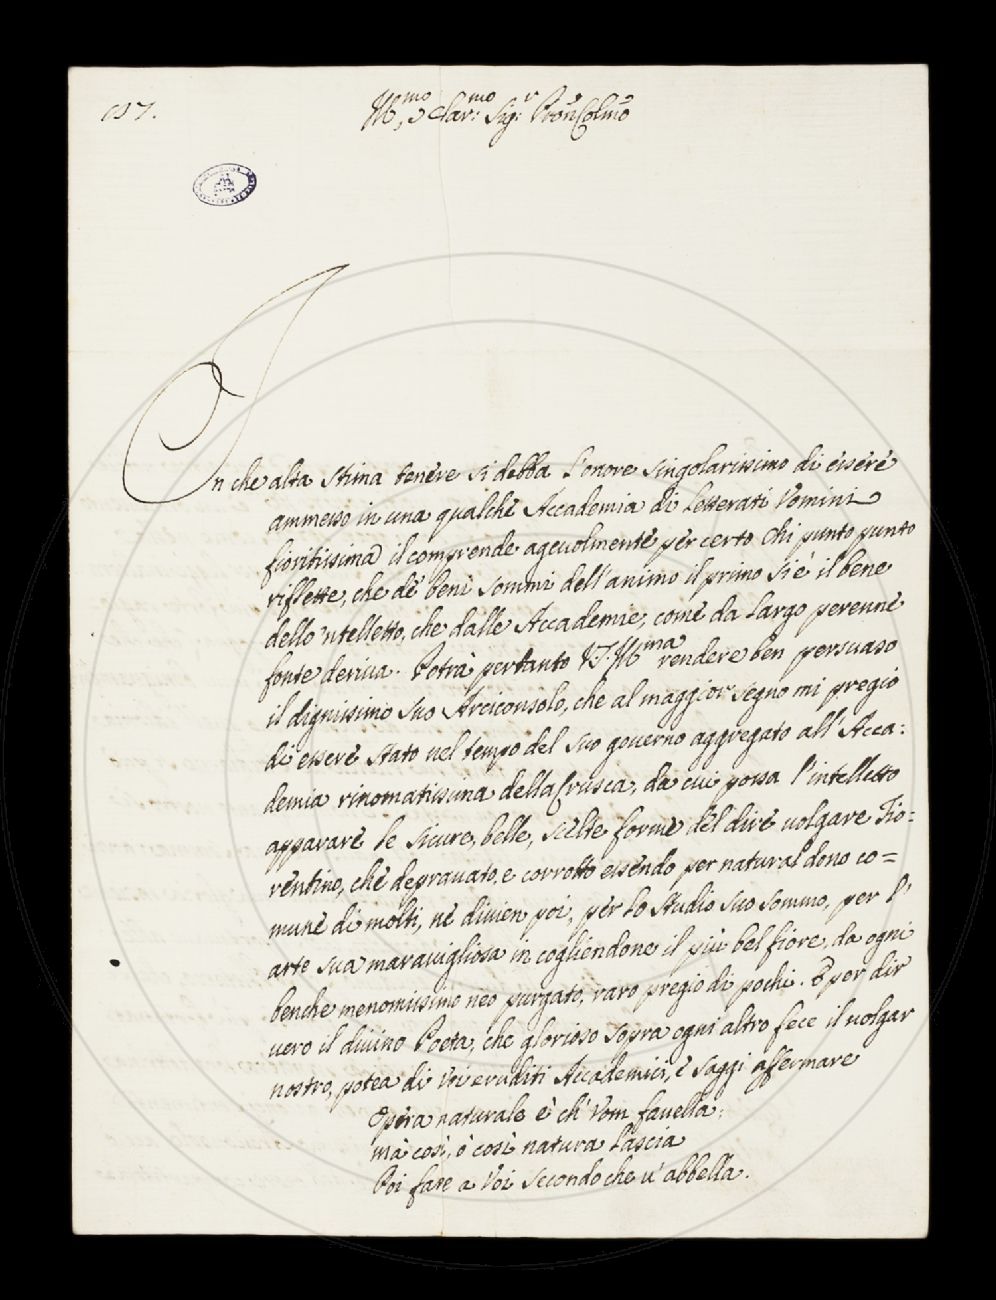 197.
Ill.mo, e Clar.mo Sig.r Pron Colmo
In che alta stima tenere si debba l'onore singolarissimo di essere
ammesso in una qualche Accademia di Letterati Vomini
fioritissima il comprende ageuolmente per certo chi punto punto
riflette, che de' beni sommi dell'animo il primo si è il bene
dello 'ntelletto, che dalle Accademie, come da largo perenne
fonte deriua. Potrà pertanto V.S. Ill.ma rendere ben persuaso
il dignissimo suo Arciconsolo, che al maggior segno mi pregio
di essere stato nel tempo del suo gouerno aggregato all'Acca:
demia rinomatissima della Crusca, da cui possa l'intelletto
apparare le sicure, belle, scelte forme del dire uolgare Fio:
rentino, che deprauato, e corrotto essendo per natural dono co=
mune di molti, ne diuien poi, per lo studio suo sommo, per l'
arte sua marauigliosa in cogliendone il più bel fiore, da ogni
benche menomissimo neo purgato, raro pregio di pochi. E per dir
uero il diuino Poeta, che glorioso sopra ogni altro fece il uolgar
nostro, potea di Voi eruditi Accademici, e saggi affermare
Opera naturale è ch' Vom fauella:
mà così, o così natura lascia
Poi fare a Voi secondo che u' abbella.